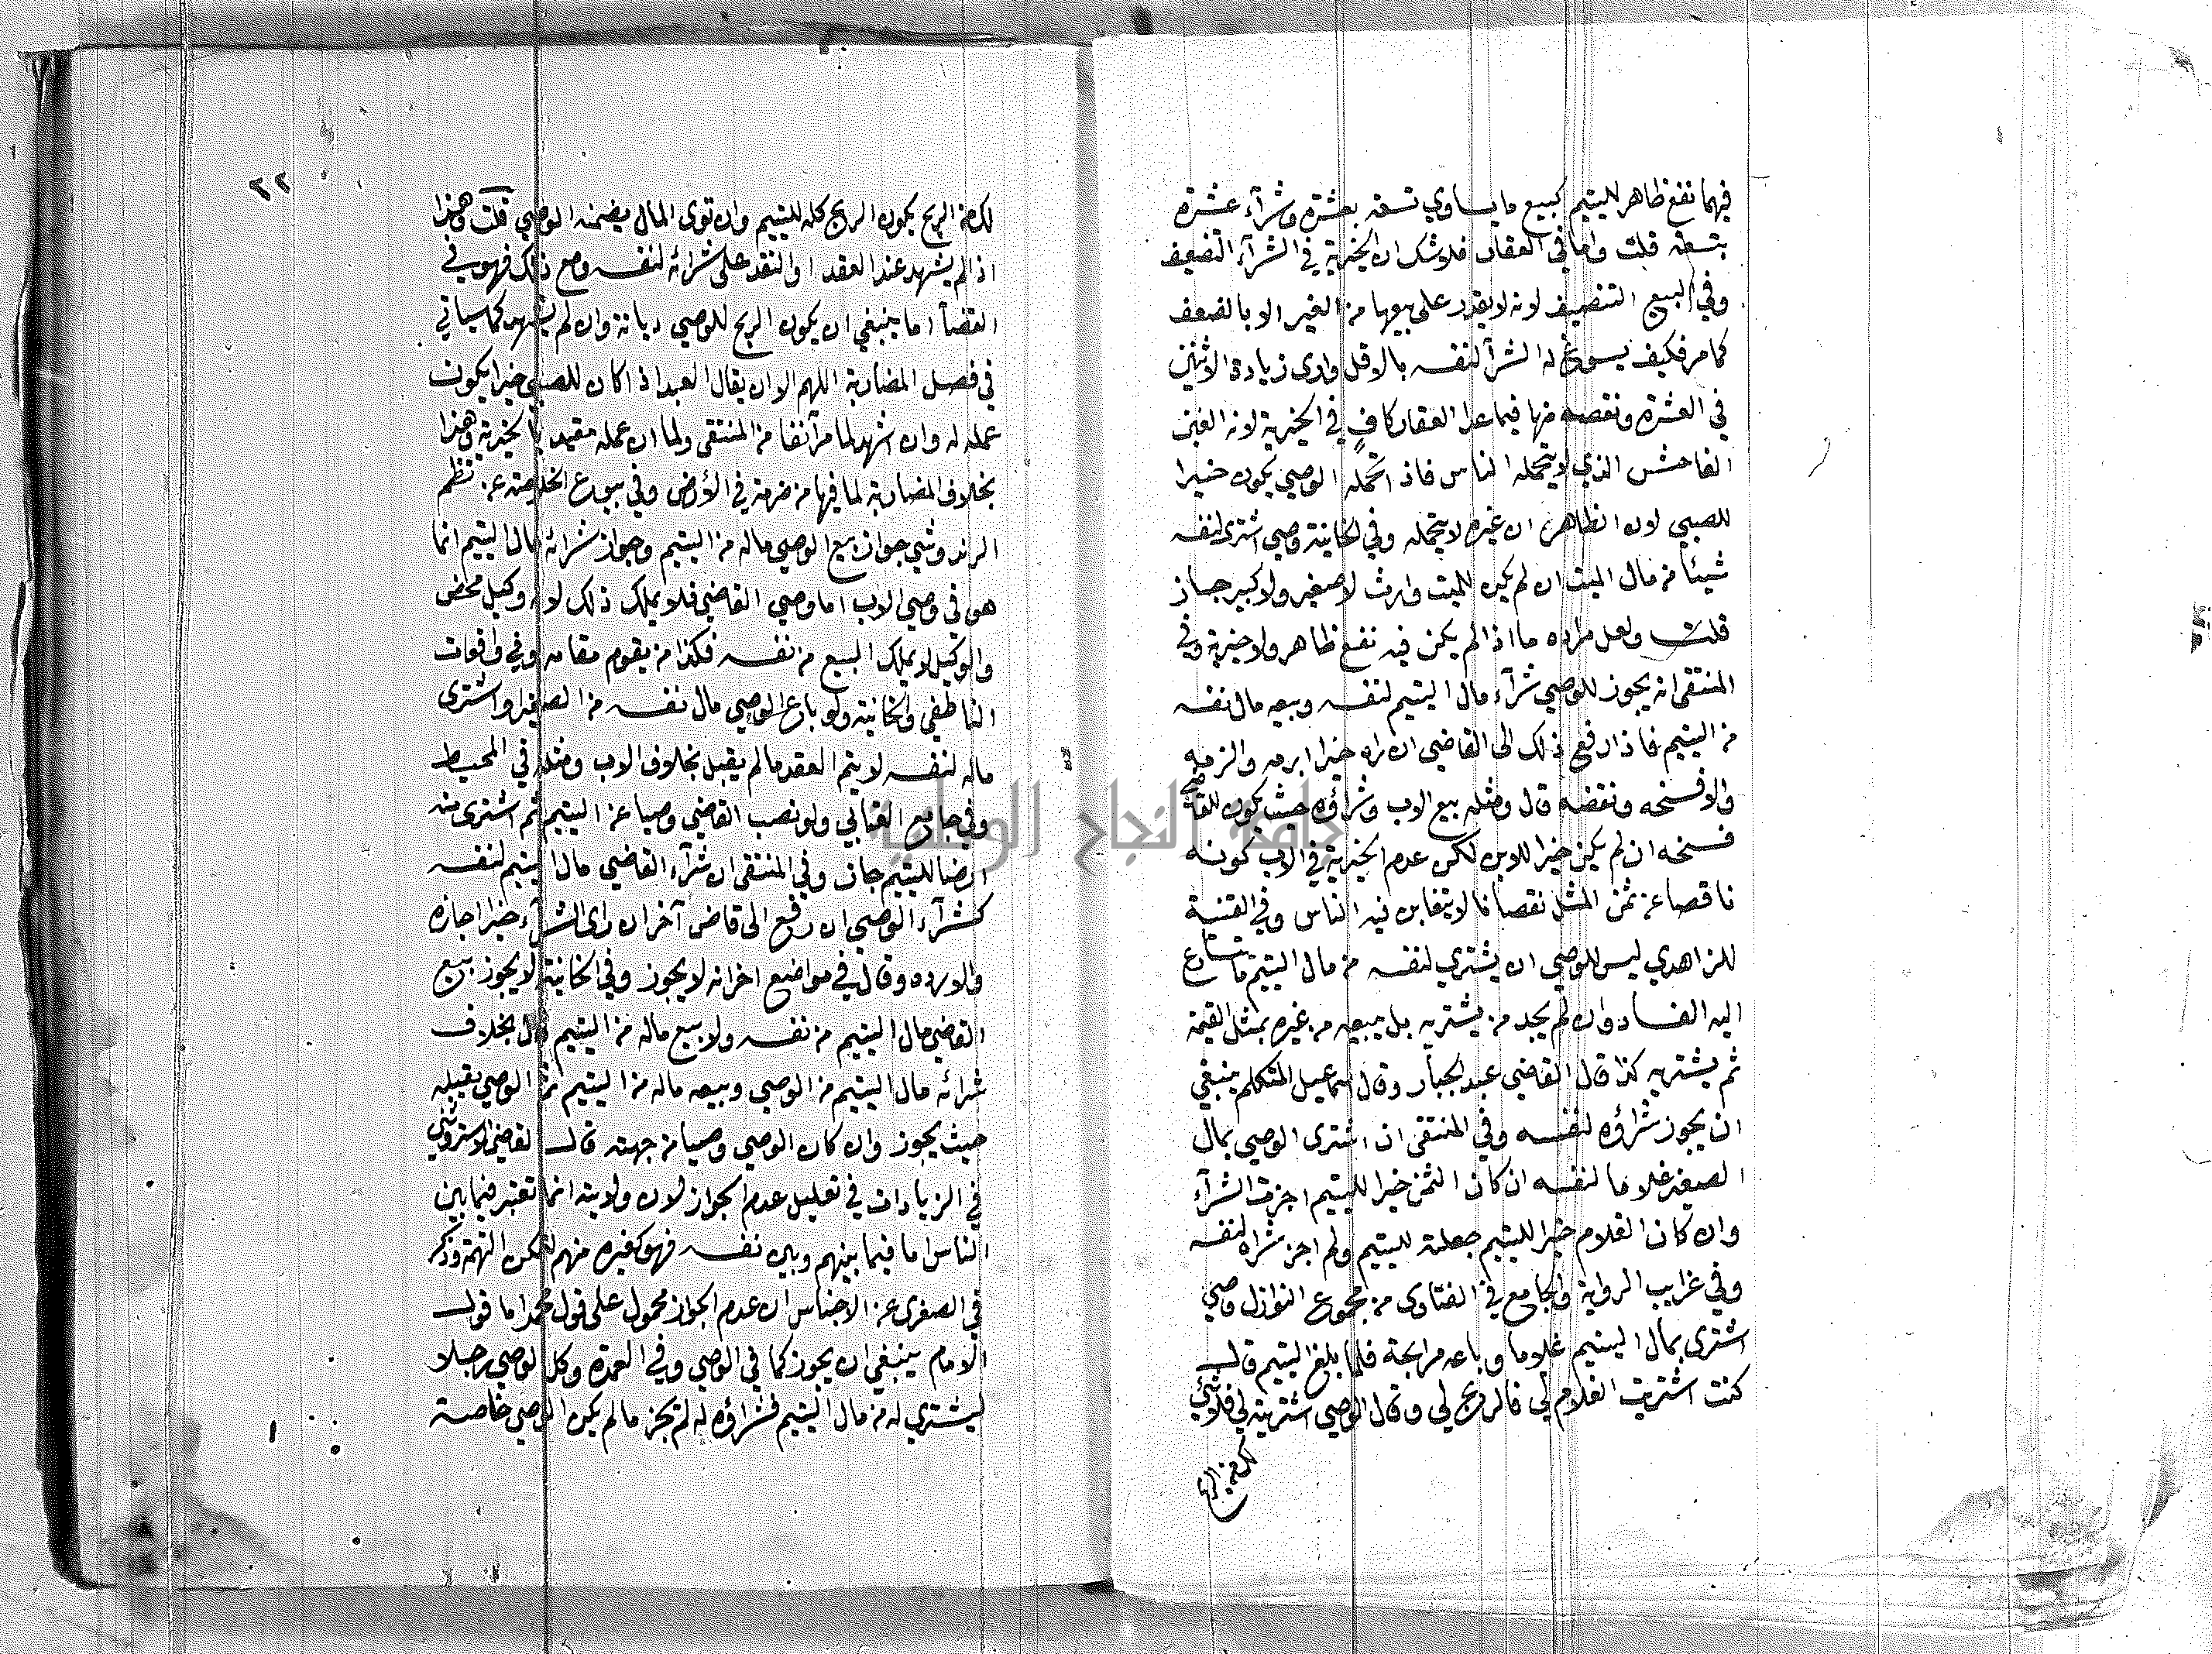 فيهما نفع ظاهر لليتيم كبيع ما يساوي تسعة بعشرة وشرآء عشرة
بتسعة قلت واما في العقار فلا شك ان الخيرية في الشرآء التضعيف
وفي البيع التنصيف لانه لا يقدر على بيعها من الغير الا بالضعف
كما مر فكيف يسوغ له الشرآ لنفسه بالاقل وارى زيادة الاثنين
في العشرة ونقصه منها فيما عدا العقار كافٍ في الخيرية لانه الغبن
الفاحش الذي لا يتحمله الناس فاذا تحمله الوصي يكون خيرا
للصبي لان الظاهر ان غيره لا يتحمله وفي الخانية وصي اشترى لنفسه
شيئا من مال الميت ان لم يكن للميت وارث لا صغير ولا كبير جاز
قلت ولعل مراده ما اذا لم يكن فيه نفع ظاهر ولا خيرية وفي
المنتقى انه يجوز للوصي شرآء مال اليتيم لنفسه وبيعه مال نفسه
من اليتيم فاذا رفع ذلك الى القاضي ان راه خيرا ابرمه والزمه
والا فسخه ونقضه قال ومثله بيع الاب وشراؤه حيث يكون للقاضي
فسخه ان لم يكن خيرا للابن لكن عدم الخيرية في الاب كونه
ناقصا عن ثمن المثل نقصانا لا يتغابن فيه الناس وفي القنية
للزاهدي ليس للوصي ان يشتري لنفسه من مال اليتيم ما يتسارع
اليه الفساد وان لم يجد من يشتريه بل يبيعه من غيره بمثل القيمة
ثم يشتريه كذا قال القاضي عبد الجبار وقال اسماعيل المتكلم ينبغي
ان يجوز شراؤه لنفسه وفي المنتقى ان اشترى الوصي بمال
الصغير غلاما لنفسه ان كان الثمن خيرا لليتيم اجزت الشرآء
وان كان الغلام خيرا لليتيم جعلته لليتيم ولم اجز شراه لنفسه
وفي غرايب الرواية والجامع في الفتاوى من مجموع النوازل وصي
اشترى بمال اليتيم غلاما وباعه مرابحة فلما بلغ اليتيم قال
كنت اشتريت الغلام لي فالربح لي وقال الوصي اشتريته لي فلا شئ
لك فمن الربح
٢٢
لك من الربح يكون الربح كله لليتيم وان توى المال يضمنه الوصي قلت وهذا
اذا لم يشهد عند العقد او النقد على شرائه لنفسه ومع ذلك فهو في
القضآ اما ينبغي ان يكون الربح للوصي ديانة وان لم يشهد كما سياتي
في فصل المضاربة اللهم الا ان يقال العبد اذا كان للصبي خيرا يكون
عمله له وان اشهد لما مر آنفا من المنتقى ولما ان عمله مقيد بالخيرية وهذا
بخلاف المضاربة لما فيها من ضربة في الأرض وفي بيوع الخلاصة عن نظم
الزندوشي جواز بيع الوصي ماله من اليتيم وجواز شرائه مال اليتيم انما
هو في وصي الاب اما وصي القاضي فلا يملك ذلك لانه وكيل محض
والوكيل لا يملك البيع من نفسه فكذا من يقوم مقامه وفي واقعات
الناطفي والخانية ولو باع الوصي مال نفسه من الصغير او اشترى
ماله لنفسه لا يتم العقد ما لم يقبل بخلاف الاب ومثله في المحيط
وفي جامع العتابي ولو نصب القاضي وصيا عن اليتيم ثم اشترى منه
ارضا لليتيم جاز وفي المنتقى ان شرآء القاضي مال اليتيم لنفسه
كشرآء الوصي ان رفع الى قاض آخر ان راى الشرآء خيرا اجازه
والا رده وقال في مواضع اخر انه لا يجوز وفي الخانية لا يجوز بيع
القاضي مال اليتيم من نفسه ولا بيع ماله من اليتيم قال بخلاف
شرائه مال اليتيم من الوصي وبيعه ماله من اليتيم والوصي يقبله
حيث يجوز وان كان الوصي وصيا من جهته قال القاضي الاستروشني
في الزيادات في تعليل عدم الجواز لان ولايته انما تعتبر فيما بين
الناس اما فيما بينهم وبين نفسه فهو كغيره منهم لتمكن التهمة وذكر
في الصغرى عن الاجناس ان عدم الجواز محمول على قول محمد اما قول
الامام ينبغي ان يجوز كما في الوصي وفي العمدة وكل الوصي رجلا
ليشتري له من مال اليتيم فشراؤه له لم يجز ما لم يكن الوصي خاصة
جامعة النجاح الوطنية